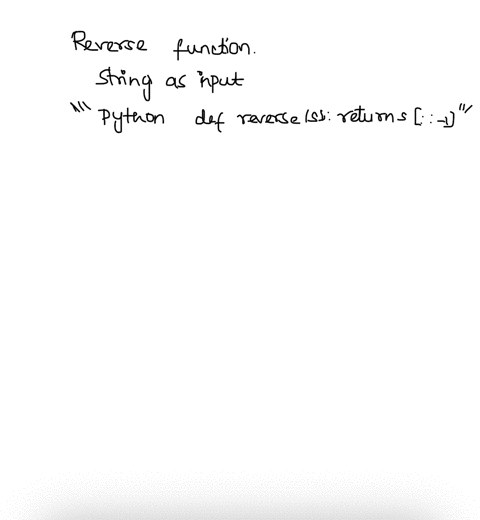 Reverse function.
String as input
``` Python def reverse(s): return s[::-1]```